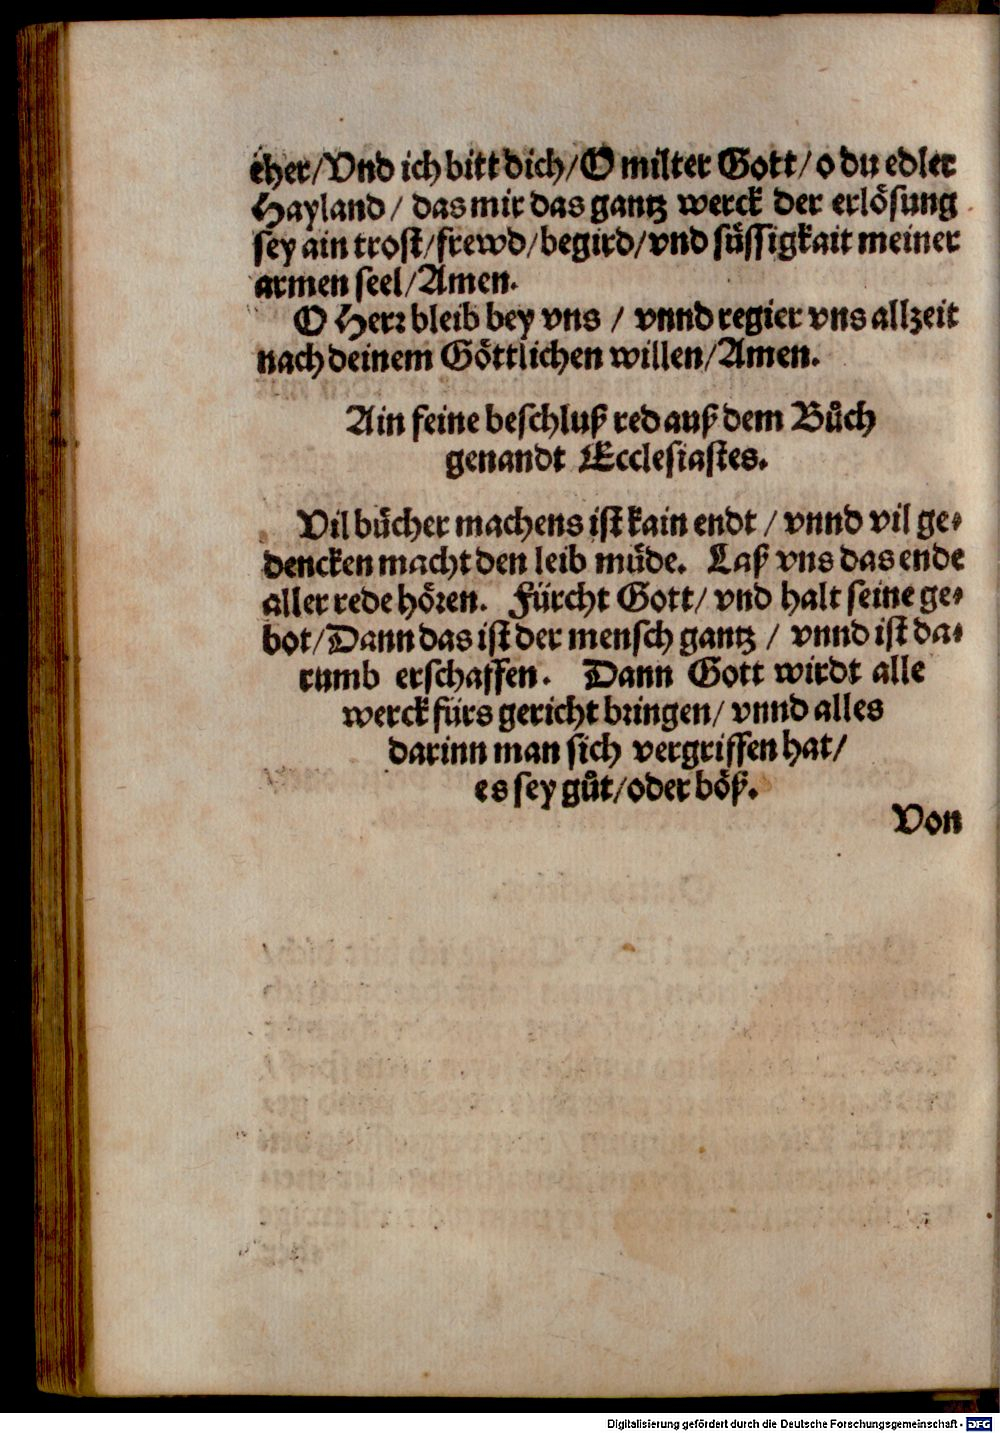 eher/Vnd ich bitt dich/O milter Gott/o du edler
Hayland/ das mir das gantz werck der erlösung
sey ain trost/frewd/begird/vnd süssigkait meiner
armen seel/Amen.
O Herr bleib bey vns / vnnd regier vns allzeit
nach deinem Göttlichen willen/Amen.
Ain feine beschluß red auß dem Bůch
genandt Ecclesiastes.
Vil bücher machens ist kain endt / vnnd vil ge-
dencken macht den leib müde. Laß vns das ende
aller rede hören. Fürcht Gott/ vnd halt seine ge-
bot/Dann das ist der mensch gantz / vnnd ist da-
rumb erschaffen. Dann Gott wirdt alle
werck fürs gericht bringen/ vnnd alles
darinn man sich vergriffen hat/
es sey gůt/oder böß.
Von
Digitalisierung gefördert durch die Deutsche Forschungsgemeinschaft - DFG